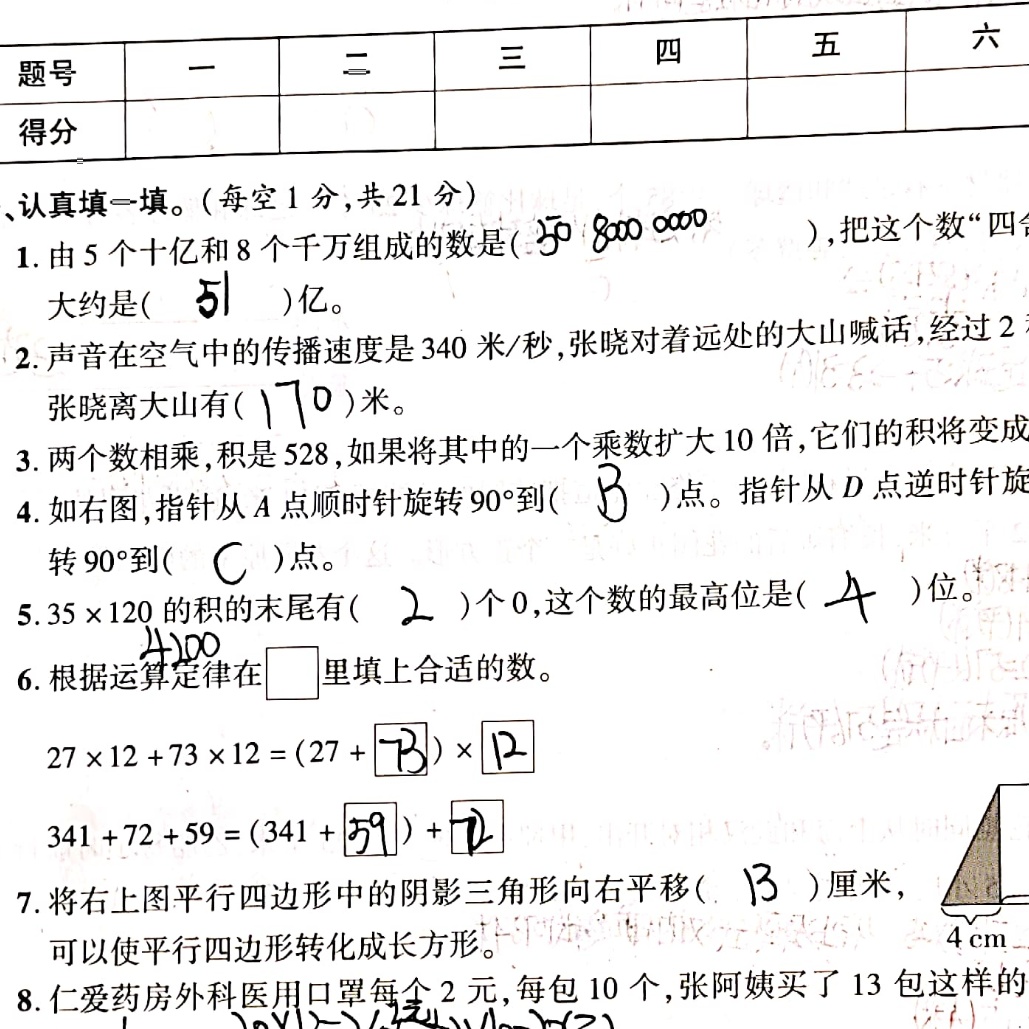 题号 一 二 三 四 五 六
得分
、认真填一填。(每空1分,共21分)
1. 由5个十亿和8个千万组成的数是( 50 8000 0000 ),把这个数“四舍
大约是( 51 )亿。
2. 声音在空气中的传播速度是340米/秒,张晓对着远处的大山喊话,经过2
张晓离大山有( 170 )米。
3. 两个数相乘,积是528,如果将其中的一个乘数扩大10倍,它们的积将变成
4. 如右图,指针从A点顺时针旋转90°到( B )点。指针从D点逆时针旋
转90°到( C )点。
5. 35×120的积的末尾有( 2 )个0,这个数的最高位是( 4 )位。
4200
6. 根据运算定律在□里填上合适的数。
27×12+73×12=(27+73)×12
341+72+59=(341+59)+72
7. 将右上图平行四边形中的阴影三角形向右平移( 13 )厘米,
可以使平行四边形转化成长方形。
4 cm
8. 仁爱药房外科医用口罩每个2元,每包10个,张阿姨买了13包这样的